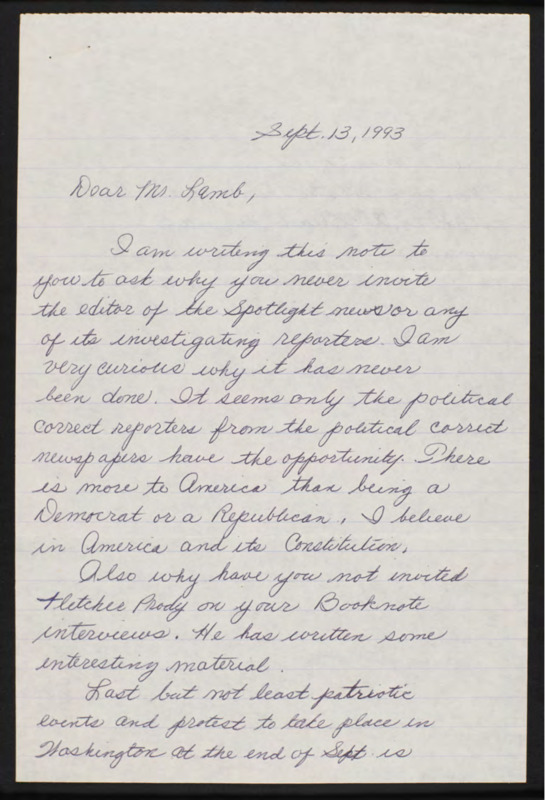 Sept. 13, 1993
Dear Mr. Lamb,
I am writing this note to
you to ask why you never invite
the editor of the Spotlight news or any
of its investigating reporters. I am
very curious why it has never
been done. It seems only the political
correct reporters from the political correct
newspapers have the opportunity. There
is more to America than being a
Democrat or a Republican. I believe
in America and its Constitution.
Also why have you not invited
Fletcher Prody on your Booknote
interviews. He has written some
interesting material.
Last but not least patriotic
events and protest to take place in
Washington at the end of Sept. is